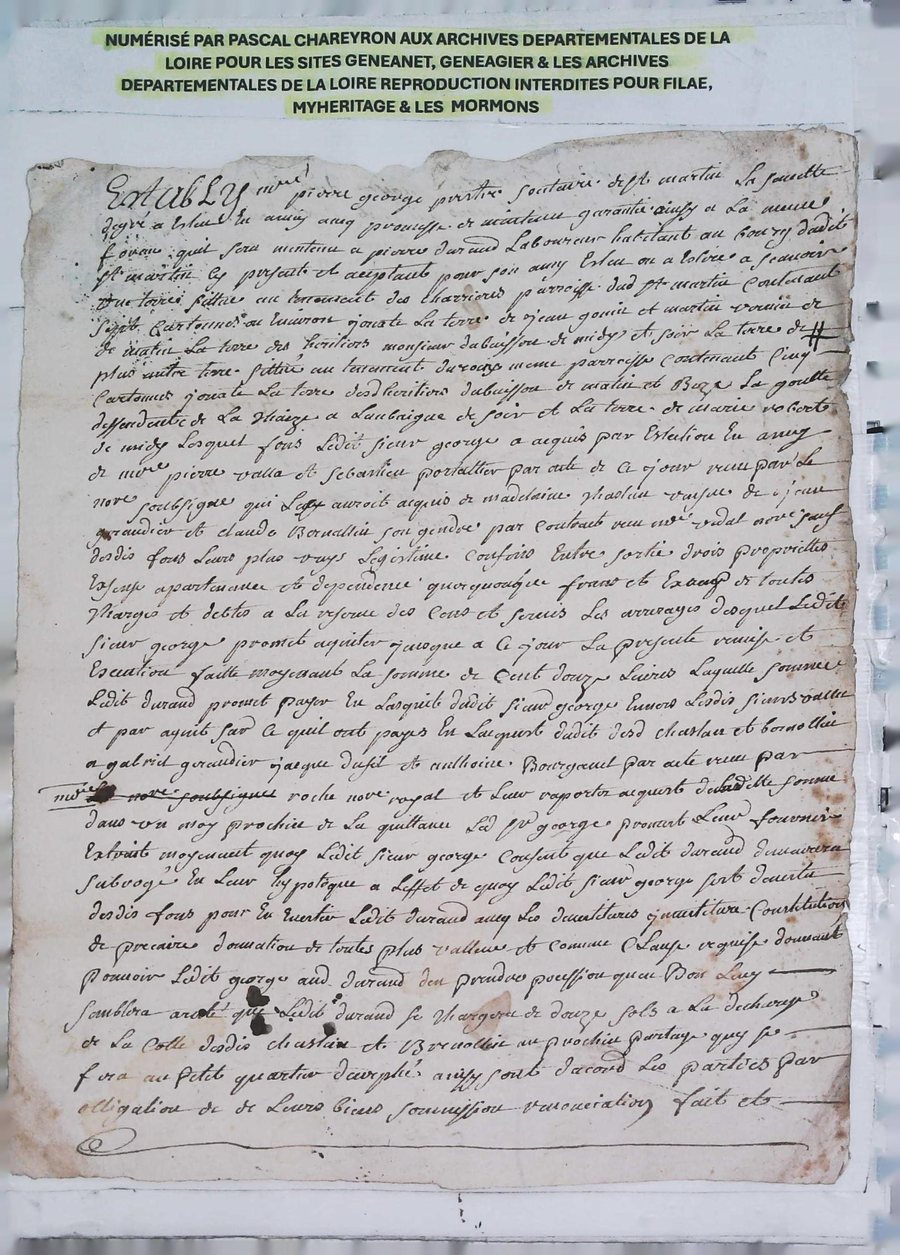 NUMÉRISÉ PAR PASCAL CHAREYRON AUX ARCHIVES DEPARTEMENTALES DE LA
LOIRE POUR LES SITES GENEANET, GENEAGIER & LES ARCHIVES
DEPARTEMENTALES DE LA LOIRE REPRODUCTION INTERDITES POUR FILAE,
MYHERITAGE & LES MORMONS
Estably mre pierre george prestre soctaire de st martin La
degré a Esteu En amy avec promesse de maintenue garantie
quil sera maintenu a pierre durand Laboureur habitant au bourg dudit
st martin Cy present et aceptant pour son amy Esleu ou a Eslire a scavoir
une terre sittue au tenement des Charrieres parroisse dud st martin Contenant
sept Cartonnes ou Environ jouxte La terre de jean et martin de
de matin La terre des heritiers monsieur dubuisson de midy et soir La terre de #
plus autre terre sittue au tenement meme parroisse Contenant Cinq
Cartonnes jouxte La terre desd heritiers dubuisson de matin et Bize La goutte
dessendante de La a Laubaigue de soir et La terre de marie robert
de midy Lesquel fons Ledit sieur george a acquis par Eslection En amy
de mre pierre valla et sebastien portallier par acte de Ce jour receu par le
nore soubsigne qui Les auroit acquis de madelaine Chaslan vefve de jean
giraudier et claude son gendre par Contrat receu mre vidal nore
desdis fons Leurs plus vrays Legistime Confins Entre sortie drois proprietes
apartenance et dependence quelquonque frans et de toutes
Charges et debtes a La reserve des Cens et servis Les arreyages desquel Ledit
sieur george promet aquiter jusque a Ce jour La presente remise et
faitte moyenant La somme de Cent douze Livres Laquelle somme
Ledit durand promet payer En Lasquit dudit sieur george Envers Lesdis sieurs valla
et par aquit sur Ce quil ont payes En Lacquit dudit desd chaslan et
a gabriel giraudier jacque et anthoine par acte receu par
mre nore soubsigne roche nore royal et Leur raporter acquit de Ladite somme
dans un moy prochin de La quittance Led sr george promet Leur fournir
Extrait moyenant quoy Ledit sieur george Consent que Ledit durand demeurera
subrogé En Leur hypoteque a Leffet de quoy Ledit sieur george sest demetu
desdis fons pour En Ledit durand avec Les Constitution
de precaire donnation de toutes plus vallue et comme Clause requise donnant
pouvoir Ledit george aud durand den prendre possession quan Bon Luy
semblera areté que Ledit durand se Chargera de douze sols a La decharge
de La Cotte desdis chaslan et au prochin partage quy se
fera au petit quartier ainssy sont dacord Les parties par
obligation de de Leurs biens sommission renonciation fait et